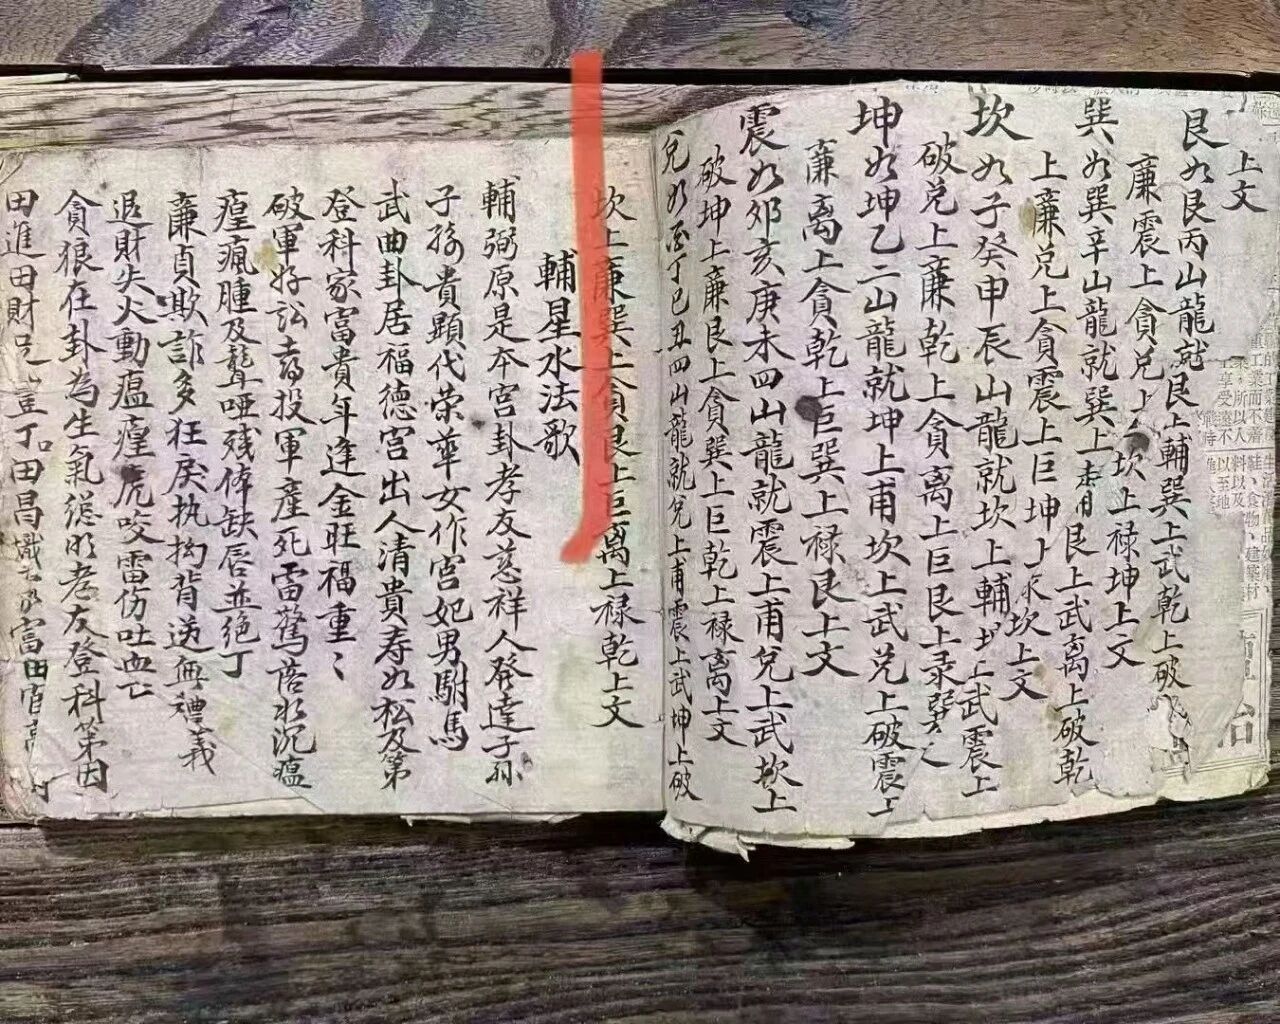 上文
艮如艮丙山龍就艮上輔巽上武乾上破
廉震上貪兑上坎上禄坤上文
巽如巽辛山龍就巽上艮上武离上破乾
上廉兑上貪震上巨坤上坎上文
坎如子癸申辰山龍就坎上輔上武震上
破兑上廉乾上貪离上巨艮上录巽
坤如坤乙二山龍就坤上甫坎上武兑上破震上
廉离上貪乾上巨巽上禄艮上文
震如卯亥庚未四山龍就震上甫兑上武坎上
破坤上廉艮上貪巽上巨乾上禄离上文
兑如酉丁巳丑四山龍就兑上甫震上武坤上破
坎上廉巽上貪艮上巨离上禄乾上文
輔星水法歌
輔弼原是本宫卦孝友慈祥人發達子孫
子孫貴顯代荣華女作宫妃男駙馬
武曲卦居福德宫出人清貴寿如松及第
登科家富貴年逢金旺福重〻
破軍好訟劫投軍産死雷驚落水沉瘟
瘟瘋腫及聾哑殘体缺唇並绝丁
廉貞欺詐多狂戾执拗背逆無禮義
退財失火動瘟瘟虎咬雷伤吐血亡
貪狼在卦為生氣聪明孝友登科第因
田進田財兄丁田昌熾富田